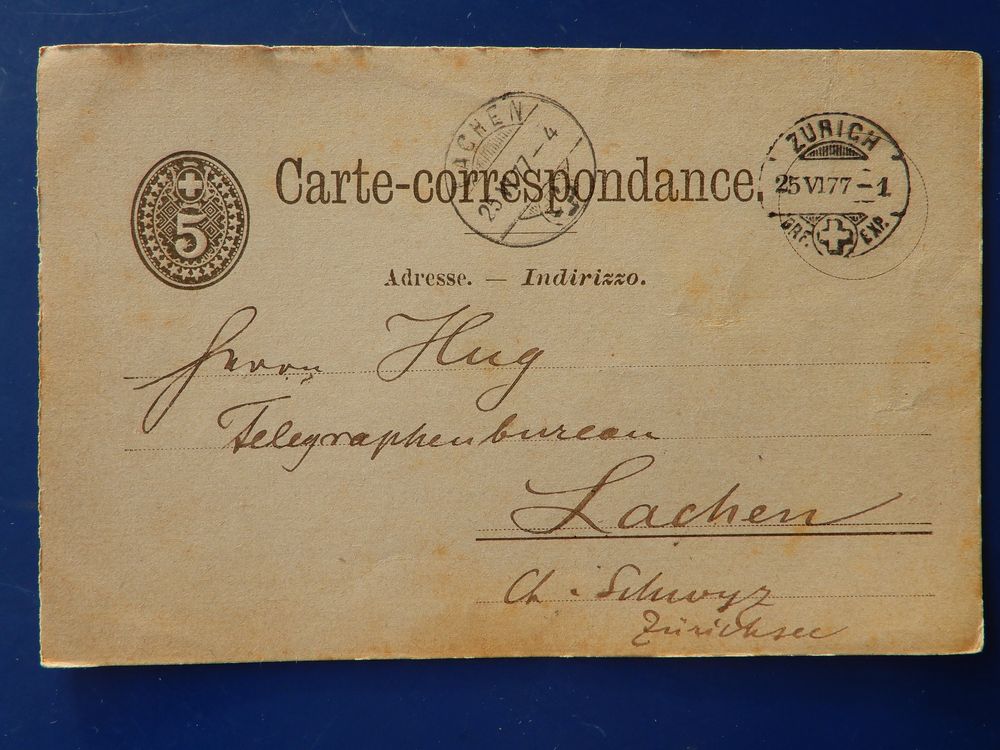 5
Carte-correspondance.
LACHEN
25 VI 77 – 4
ZÜRICH
25 VI 77 – 1
BRF. EXP.
Adresse. — Indirizzo.
Herrn Hug
Telegraphenbureau
Lachen
Ct. Schwyz
Zürichsee